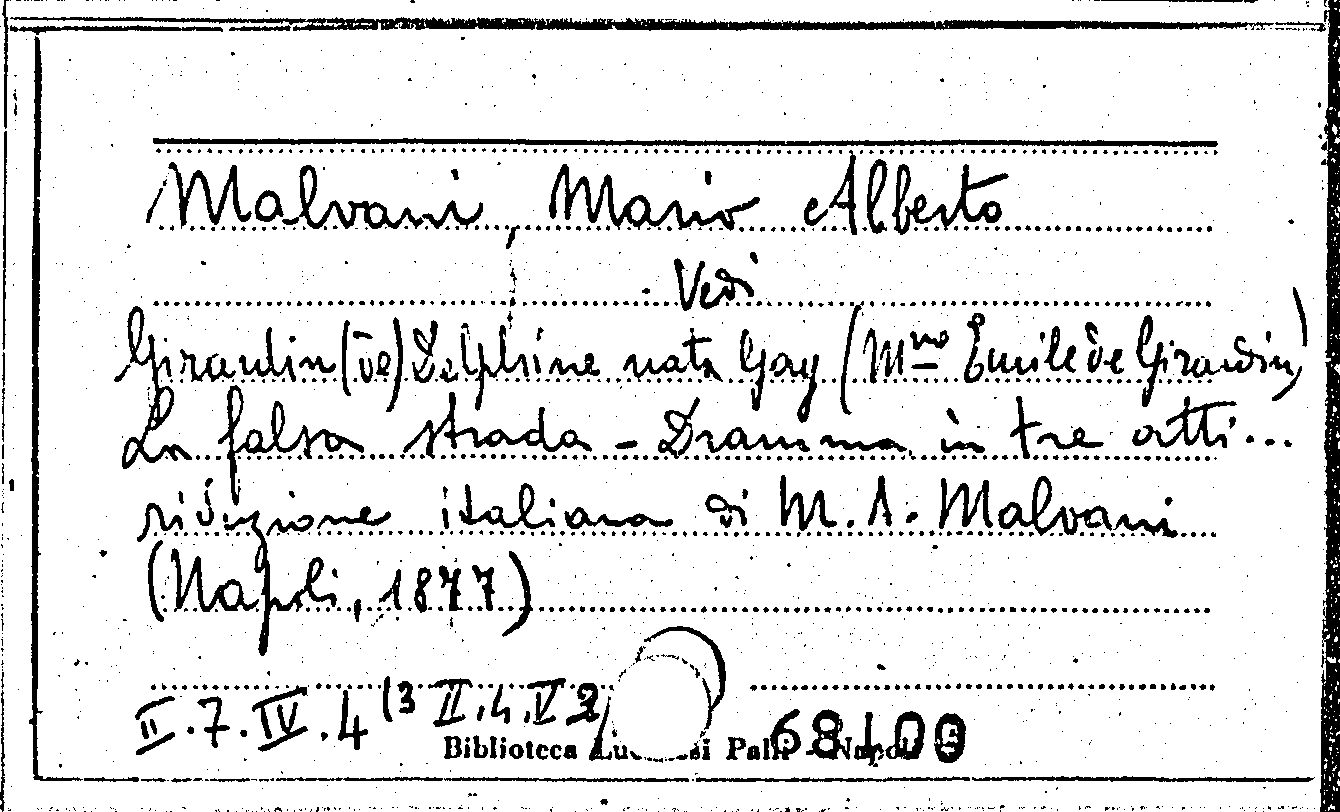 Malvani Mario Alberto
Vedi
Girardin (de) Delphine nata Gay (Mme Emile de Girardin)
La falsa strada - Dramma in tre atti...
riduzione italiana di M. A. Malvani
(Napoli, 1877)
II.7.IV.4 (3 II.4.V
Biblioteca Palli - Napoli